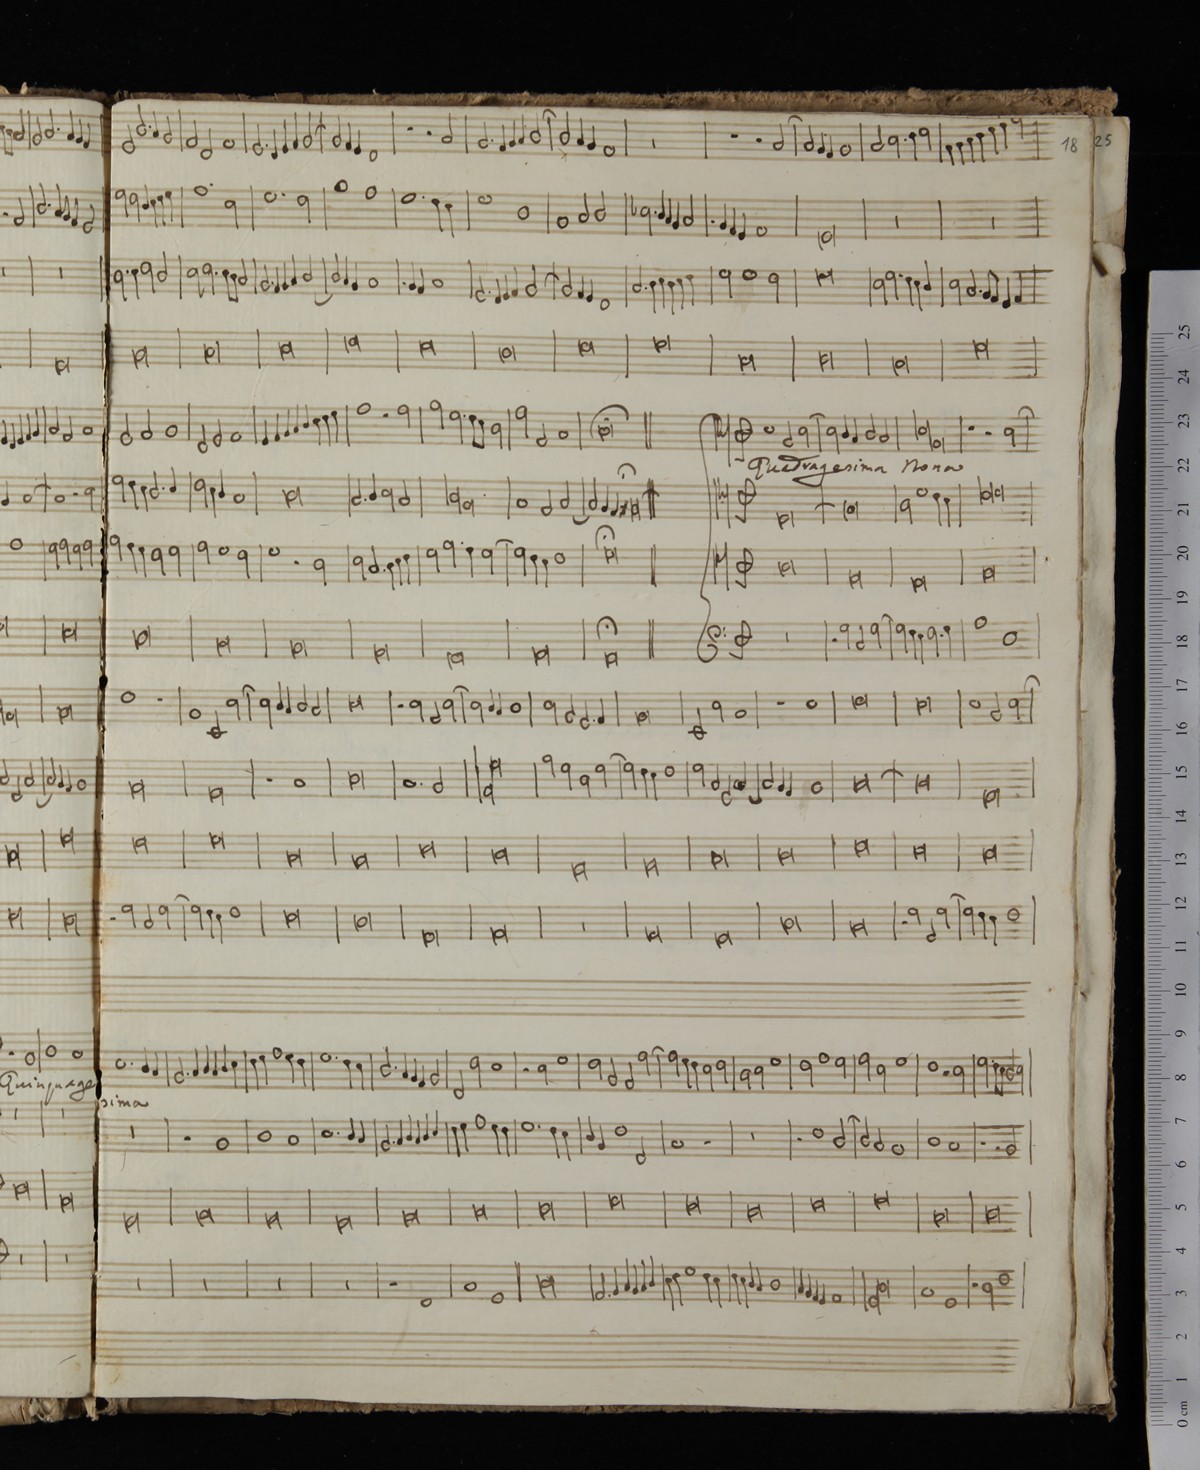 18 25
Quadragesima Nona
Quinquage
sima
25
24
23
22
21
20
19
18
17
16
15
14
13
12
11
10
9
8
7
6
5
4
3
2
1
0 cm